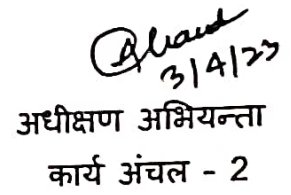 3/4/23
अधीक्षण अभियन्ता
कार्य अंचल - 2